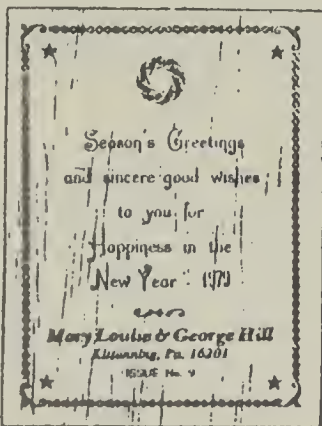 Season's Greetings
and sincere good wishes
to you for
Happiness in the
New Year - 1979
Mary Louise & George Hill
Kittanning, Pa. 16201
ISSUE No. 9